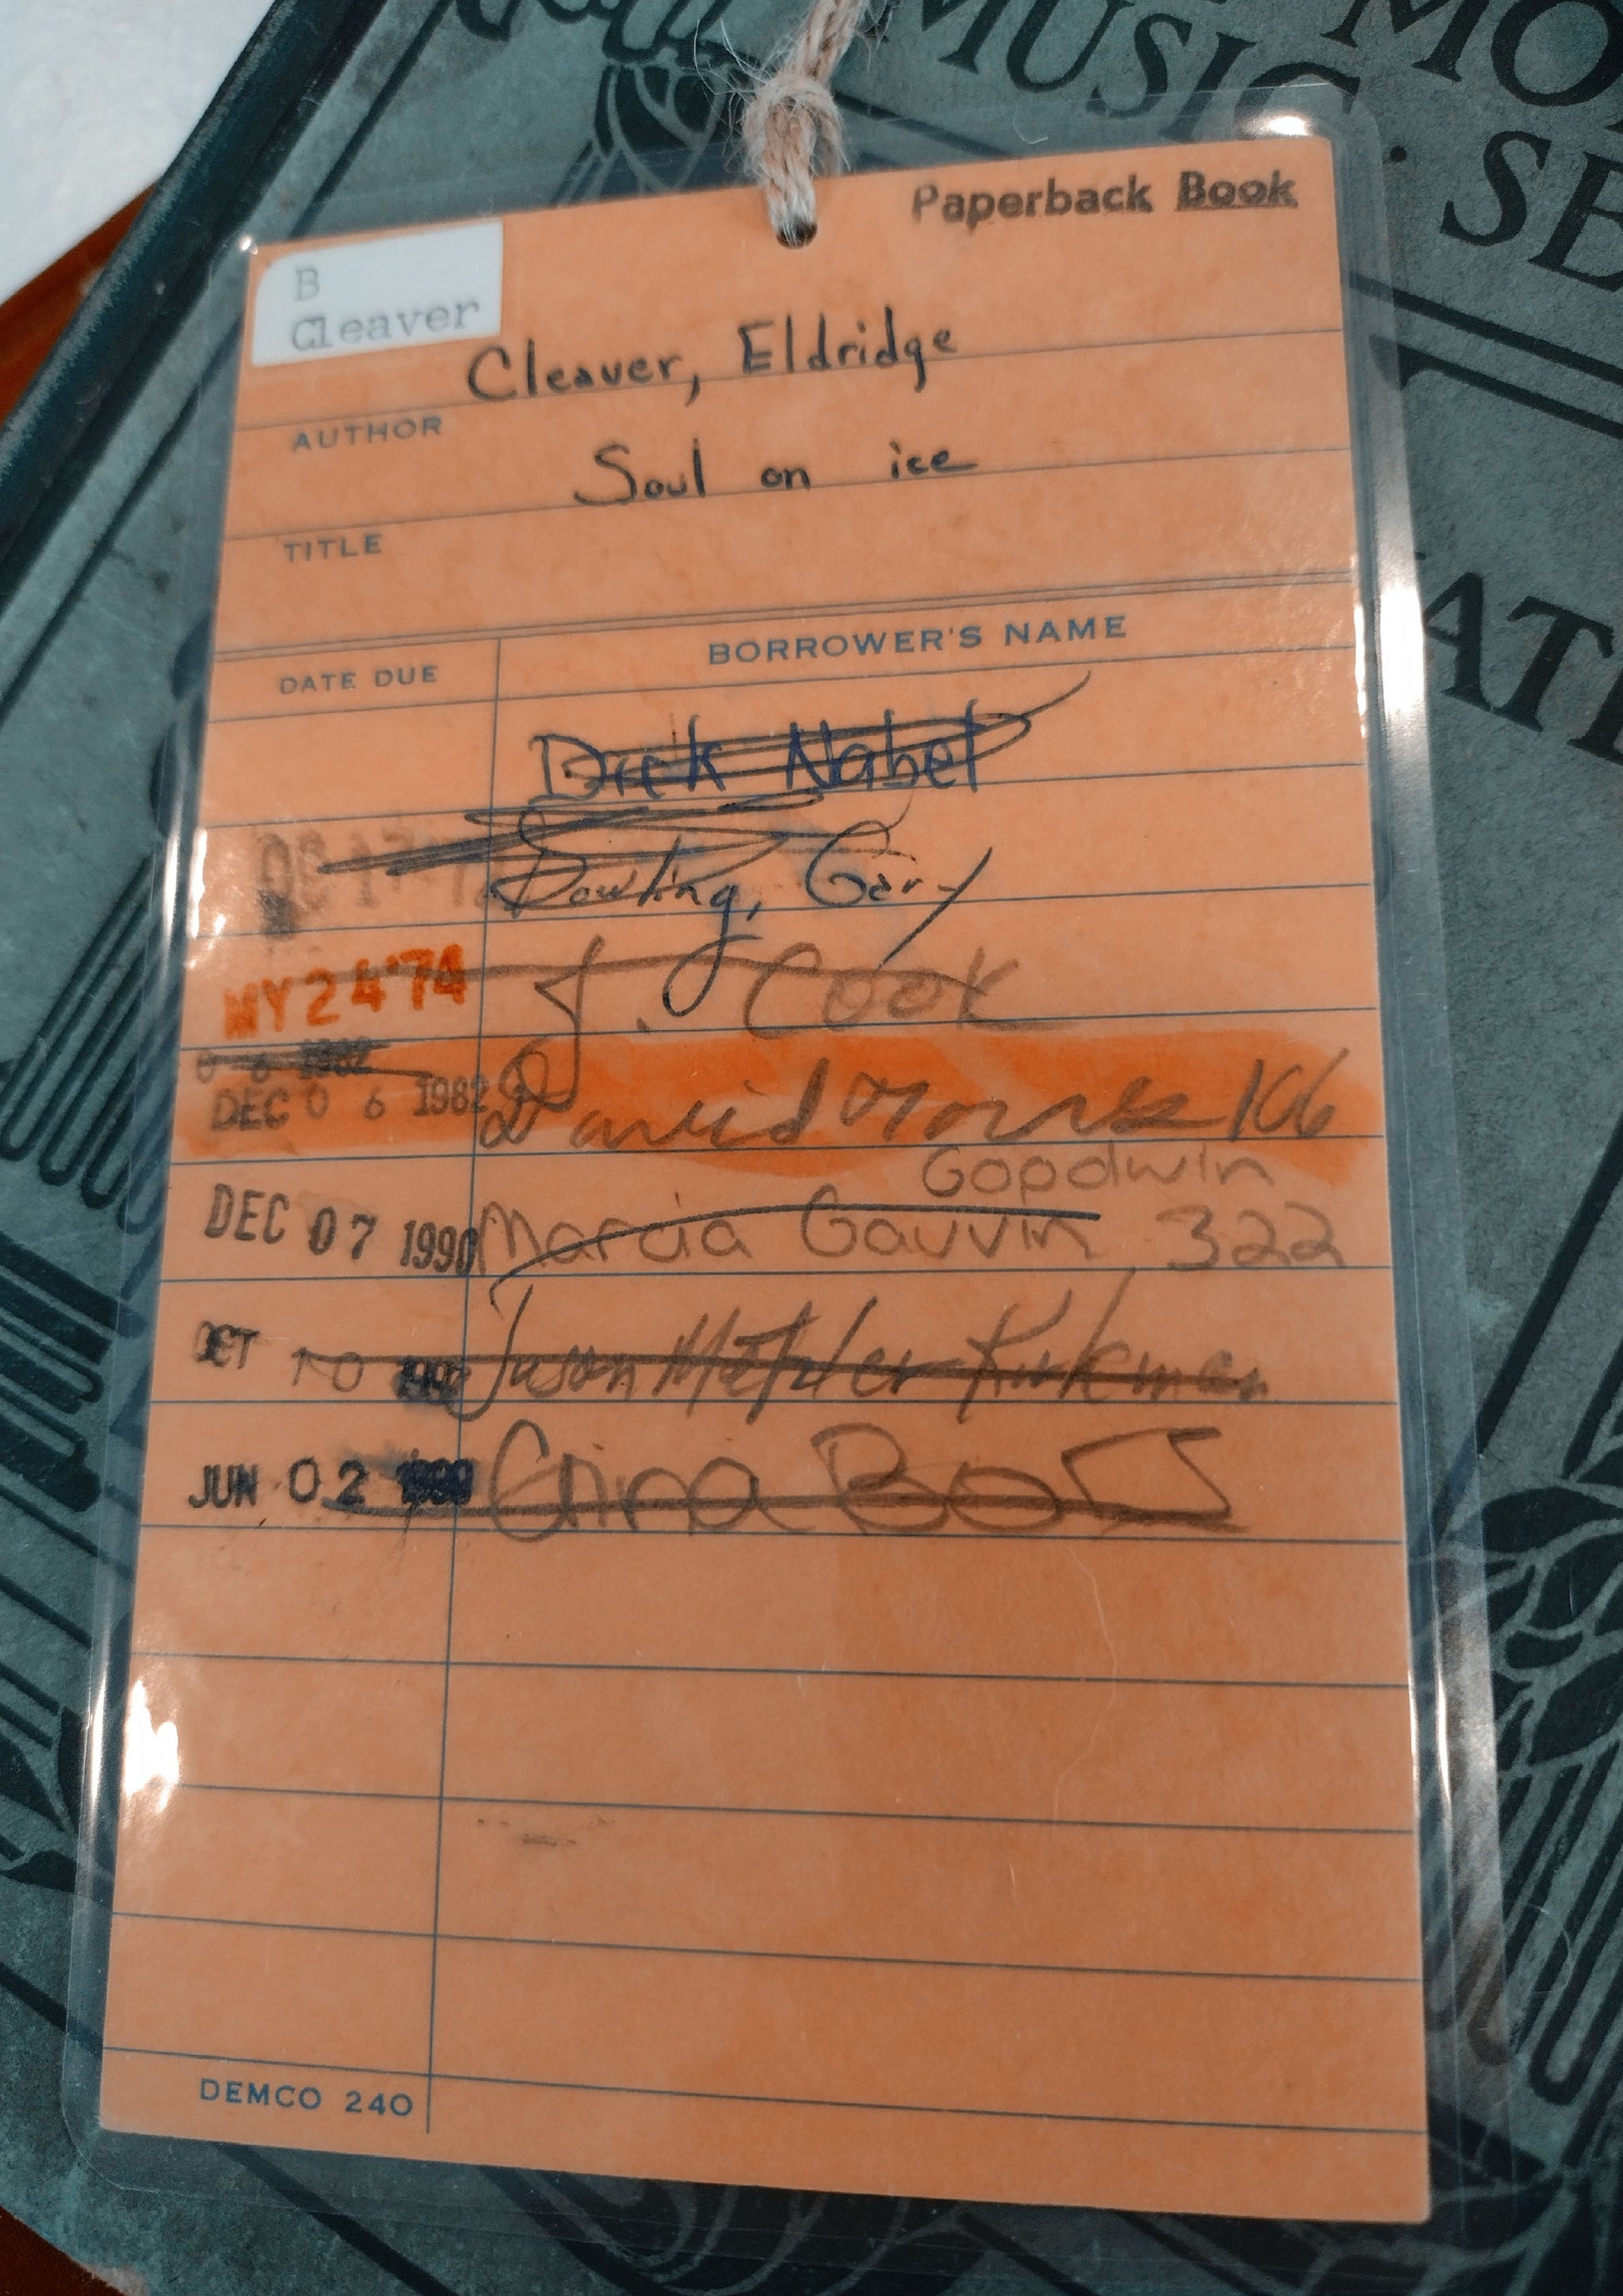 MUSIC
MO
SE
ATI
Paperback Book
B
Cleaver
Cleaver, Eldridge
AUTHOR
Soul on ice
TITLE
DATE DUE BORROWER'S NAME
Dick Nabel
OC 17 Dowling, Gary
MY 24 '74 J. Cook
DEC 06 1982 David 106
Goodwin
DEC 07 1990 Marcia Gauvin 322
OCT 10 Jason Kirkman
JUN 02 Gina
DEMCO 240